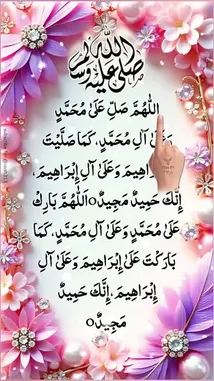 صلى الله عليه وسلم
اللّٰهُمَّ صَلِّ عَلٰى مُحَمَّدٍ
وَعَلٰى آلِ مُحَمَّدٍ، كَمَا صَلَّيْتَ
إِبْرَاهِيمَ وَعَلٰى آلِ إِبْرَاهِيمَ،
إِنَّكَ حَمِيدٌ مَجِيدٌ○ اَللّٰهُمَّ بَارِكْ
عَلٰى مُحَمَّدٍ وَعَلٰى آلِ مُحَمَّدٍ، كَمَا
بَارَكْتَ عَلٰى إِبْرَاهِيمَ وَعَلٰى آلِ
إِبْرَاهِيمَ، إِنَّكَ حَمِيدٌ
مَجِيدٌ○